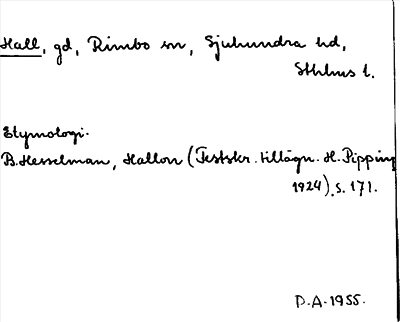 Hall, gd, Rimbo sn, Sjuhundra hd,
Sthlms l.
Etymologi.
B. Hesselman, Hallon (Festskr. tillägn. H. Pipping
1924). s. 171.
D.A. 1955.